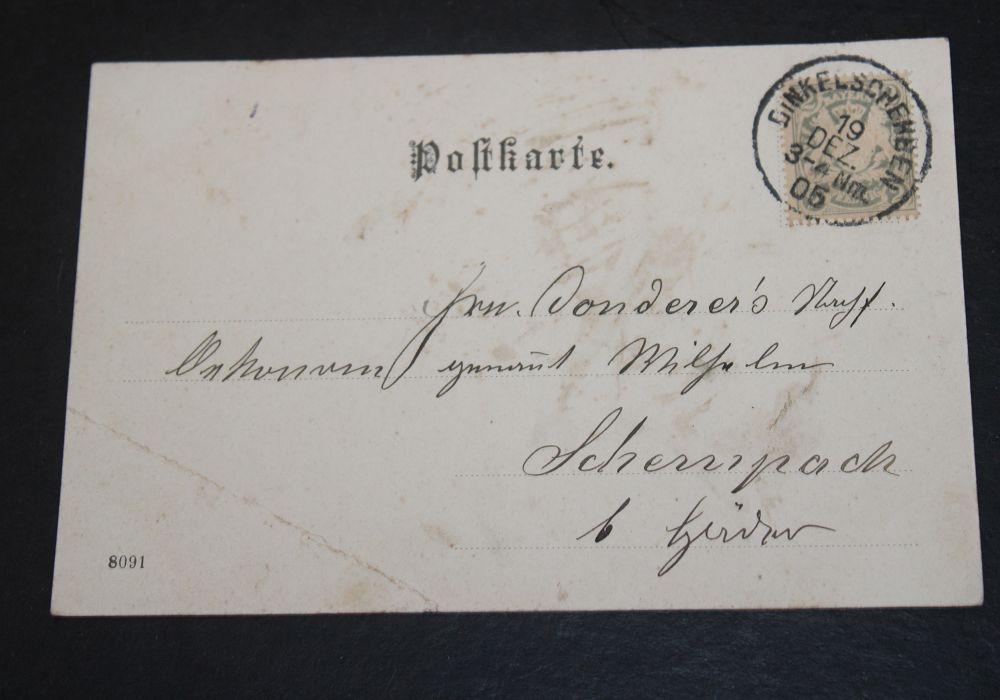 Postkarte.
DINKELSCHERBEN
19
DEZ.
3-4 Nm.
05
BAYERN
Hrn. Donderer's Nachf.
Oekonom genannt Wilhelm
Schempach
b
8091